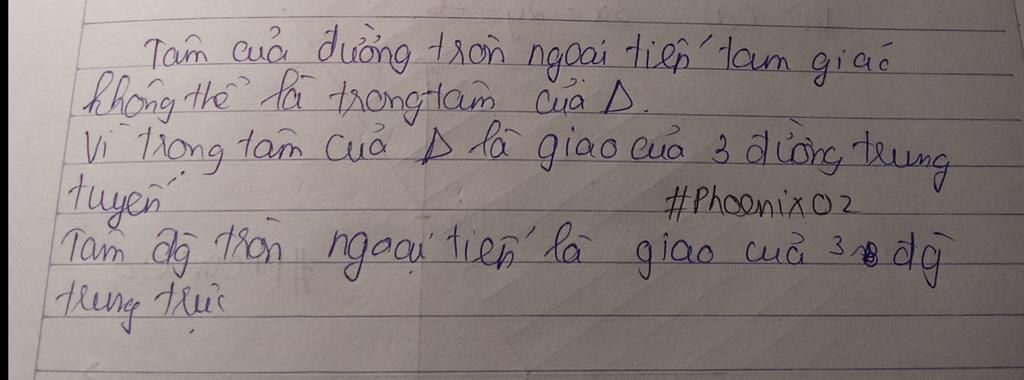 Tâm của đường tròn ngoại tiếp tam giác
không thể là trọng tâm của Δ.
Vì trọng tâm của Δ là giao của 3 đường trung
tuyến
#Phoenix02
Tâm đg tròn ngoại tiếp là giao của 3 đg
trung trực